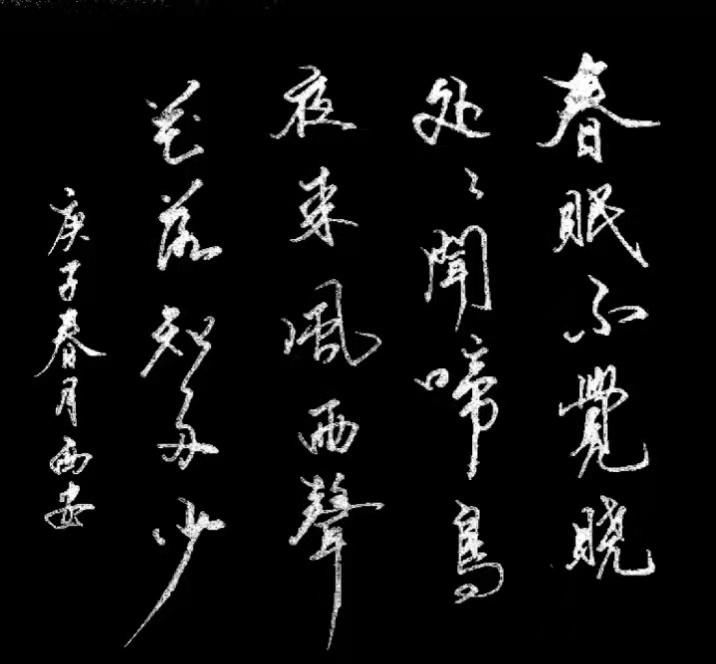 春眠不覺晓
处々聞啼鳥
夜来風雨聲
花落知多少
庚子春月西安